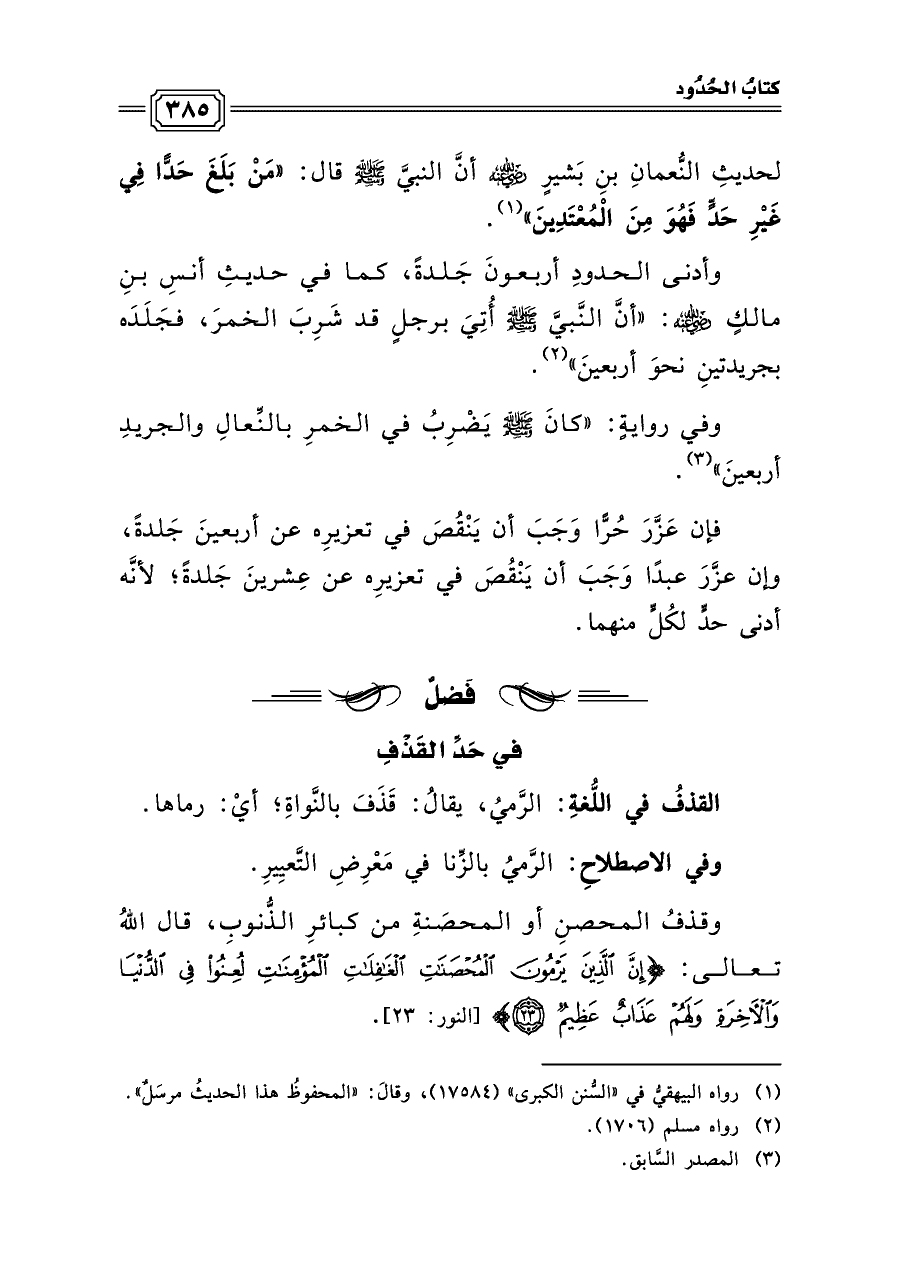 كتابُ الحُدُود
٣٨٥
لحديثِ النُّعمانِ بنِ بَشيرٍ رضي الله عنه أنَّ النبيَّ ﷺ قال: «مَنْ بَلَغَ حَدًّا فِي
غَيْرِ حَدٍّ فَهُوَ مِنَ الْمُعْتَدِينَ»(١).
وأدنى الحدودِ أربعونَ جَلدةً، كما في حديثِ أنسِ بنِ
مالكٍ رضي الله عنه: «أنَّ النَّبيَّ ﷺ أُتِيَ برجلٍ قد شَرِبَ الخمرَ، فجَلَدَه
بجريدتينِ نحوَ أربعينَ»(٢).
وفي روايةٍ: «كانَ ﷺ يَضْرِبُ في الخمرِ بالنِّعالِ والجريدِ
أربعينَ»(٣).
فإن عَزَّرَ حُرًّا وَجَبَ أن يَنْقُصَ في تعزيرِه عن أربعينَ جَلدةً،
وإن عزَّرَ عبدًا وَجَبَ أن يَنْقُصَ في تعزيرِه عن عِشرينَ جَلدةً؛ لأنَّه
أدنى حدٍّ لكُلٍّ منهما.
فَصلٌ
في حَدِّ القَذْفِ
القذفُ في اللُّغةِ: الرَّميُ، يقالُ: قَذَفَ بالنَّواةِ؛ أيْ: رماها.
وفي الاصطلاحِ: الرَّميُ بالزِّنا في مَعْرِضِ التَّعيِيرِ.
وقذفُ المحصنِ أو المحصَنةِ من كبائرِ الذُّنوبِ، قال اللهُ
تعالى: ﴿إِنَّ ٱلَّذِينَ يَرۡمُونَ ٱلۡمُحۡصَنَٰتِ ٱلۡغَٰفِلَٰتِ ٱلۡمُؤۡمِنَٰتِ لُعِنُواْ فِي ٱلدُّنۡيَا
وَٱلۡأٓخِرَةِ وَلَهُمۡ عَذَابٌ عَظِيمٞ ٢٣﴾ [النور: ٢٣].
(١) رواه البيهقيُّ في «السُّنن الكبرى» (١٧٥٨٤)، وقالَ: «المحفوظُ هذا الحديثُ مرسَلٌ».
(٢) رواه مسلم (١٧٠٦).
(٣) المصدر السَّابق.